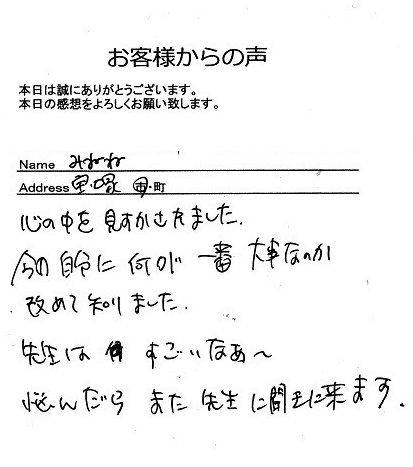 お客様からの声
本日は誠にありがとうございます。
本日の感想をよろしくお願い致します。
Name みねね
Address 宝塚 市・町
心の中を見すかされました.
今の自分に何が一番大事なのか
改めて知りました.
先生は すごいなあ〜
悩んだら また 先生に聞きに来ます.